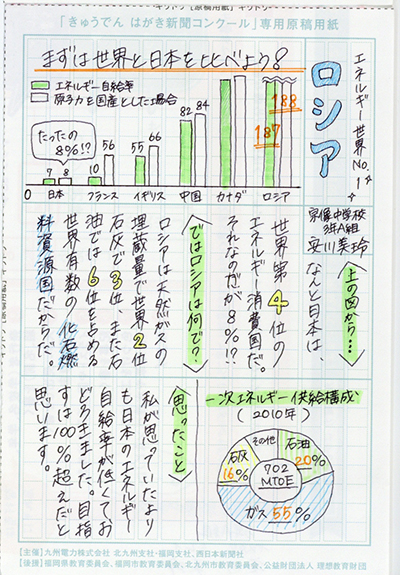 「きゅうでん はがき新聞コンクール」専用原稿用紙
エネルギー世界No.1
ロシア
宗像中学校
3年A組
まずは世界と日本を比べよう!
エネルギー自給率
原子力を国産とした場合
たったの
8%!?
7 8 10 56 55 66 82 84 187 188
0 日本 フランス イギリス 中国 カナダ ロシア
上の図から…
なんと日本は、
世界第4位の
エネルギー消費国だ。
それなのだが8%!?
ではロシアは何で?
ロシアは天然ガスの
埋蔵量で世界2位
石灰で3位、また石
油では6位を占める
世界有数の化石燃
料資源国だからだ。
一次エネルギー供給構成
(2010年)
その他
石油
20%
石灰
16%
702
MTOE
ガス 55%
思ったこと
私が思っていたより
も日本のエネルギー
自給率が低くてお
どろきました。目指
すは100%超えだと
思います。
【主催】九州電力株式会社 北九州支社・福岡支社、西日本新聞社
【後援】福岡県教育委員会、福岡市教育委員会、北九州市教育委員会、公益財団法人 理想教育財団